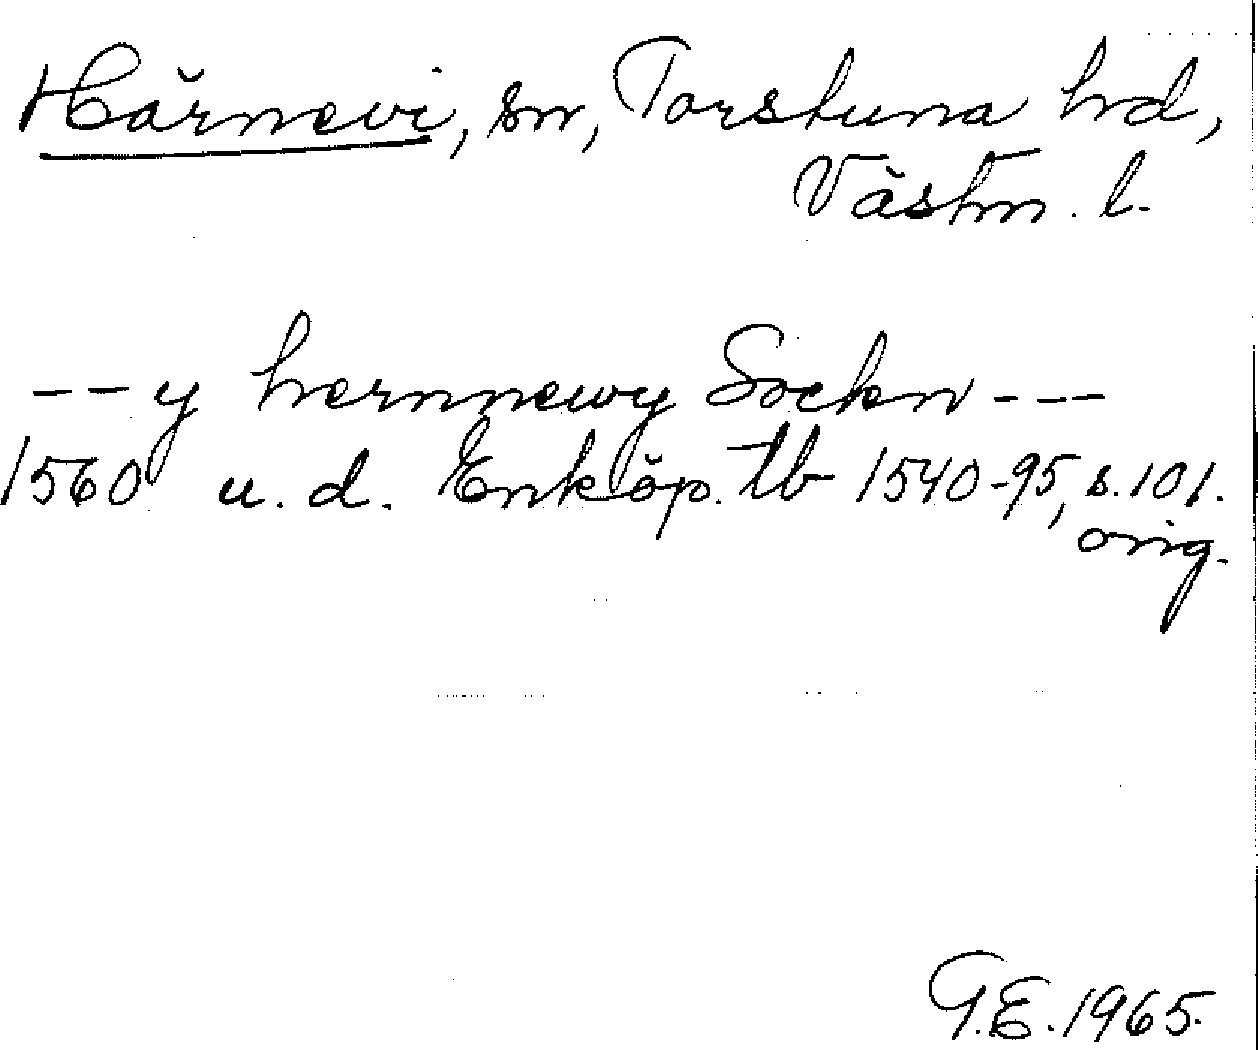 Härnevi, sn, Torstuna hd,
Västm. l.
-- y hernnewy Sockn ---
1560 u. d. Enköp. tb 1540-95, s. 101.
orig.
G.E. 1965.